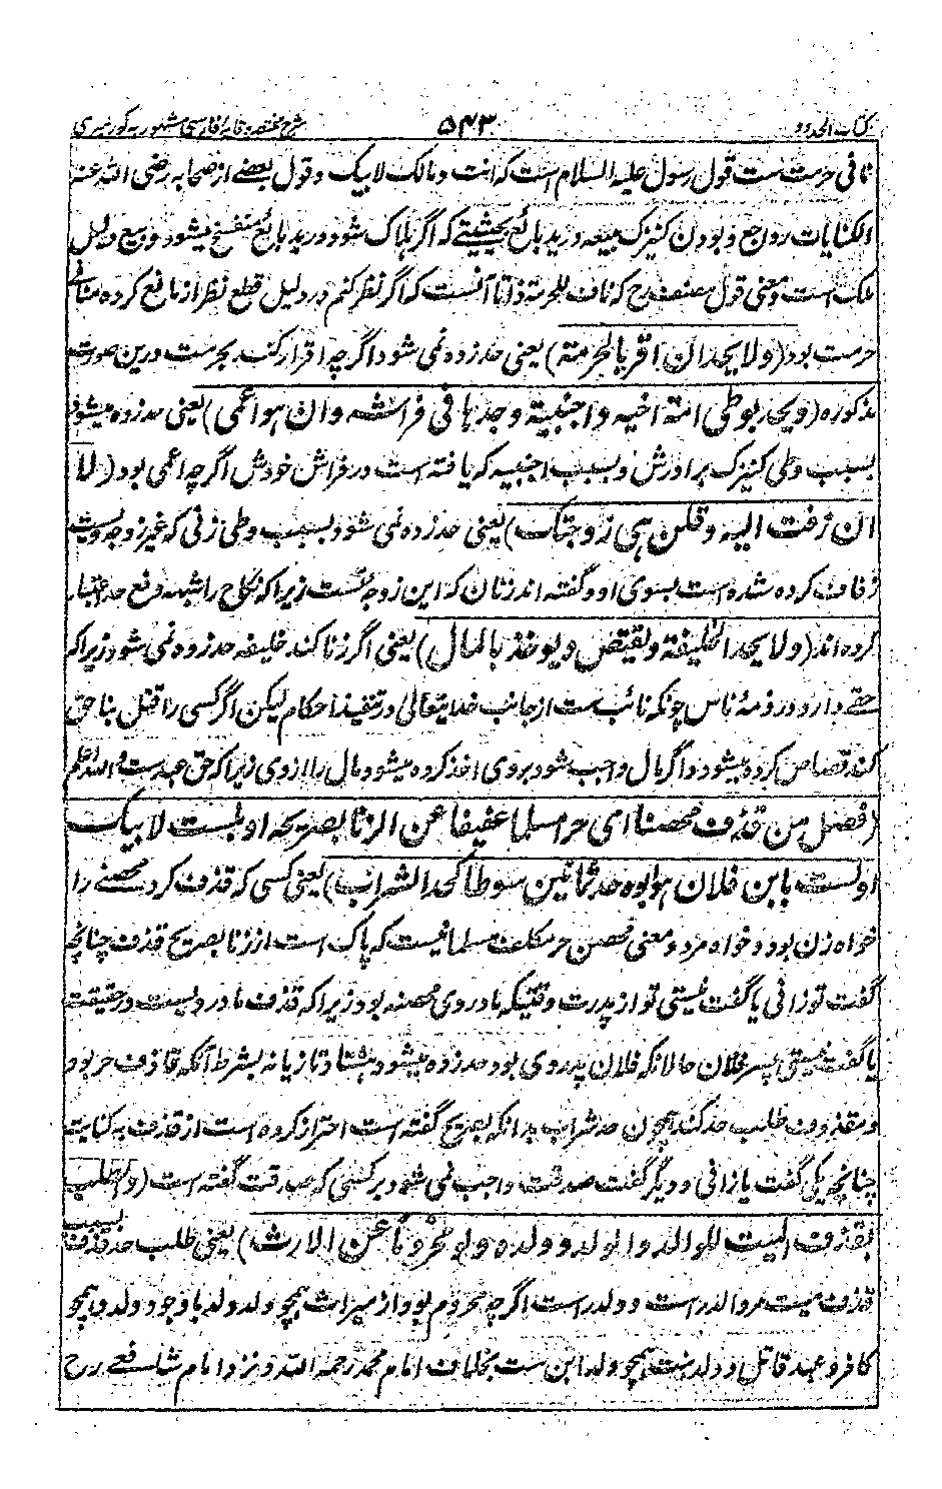 کتاب الحدود ۵۴۳ شرح مختصر وقایه فارسی مشهور به کورمیری
نافی حرمت ست قول رسول علیه السلام است که انت و مالک لابیک و قول بعضے از صحابه رضی الله عنه
الکنایات رواجع و بودن کنیزک مبیعه در ید بائع بحیثیتے که اگر هلاک شود در ید بائع منفسخ میشود و بیع دلیل
ملک است و معنی قول مصنف رح که ناف للحرمة ذاتا آنست که اگر نظر کنم در دلیل قطع نظر از مانع کرده منافی
حرمت بود (ولا یحد ان اقر بالحرمة) یعنی حد زده نمی شود اگر چه اقرار کند بحرمت درین صورت
مذکوره (ویحد بوطی امة اخیه واجنبیة وجدها فی فراشه وان هو اعمی) یعنی حد زده میشود
بسبب وطی کنیزک برادرش و بسبب اجنبیه که یافته است در فراش خودش اگر چه اعمی بود (لا
ان زفت الیه وقلن هی زوجتک) یعنی حد زده نمی شود بسبب وطی زنی که غیر زوجه ویست
زفاف کرده شده است بسوی او و گفته اند زنان که این زوجه تست زیرا که نکاح را شبهه دفع حد اعتبار
کرده اند (ولا یحد الخلیفة ویقتص ویوخذ بالمال) یعنی اگر زنا کند خلیفه حد زده نمی شود زیرا که
حقے دارد در ذمهٔ ناس چونکه نائب ست از جانب خدایتعالی در تنفیذ احکام لیکن اگر کسی را قتل بناحق
کند قصاص کرده میشود و اگر مال واجب شود بروی اخذ کرده میشود مال را از وی زیرا که حق عبد ست والله اعلم
(فصل من قذف محصنا ای حرا مسلما عفیفا عن الزنا بصریحه او بلست لابیک
او لست بابن فلان هو ابوه حد ثمانین سوطا کحد الشراب) یعنی کسی که قذف کرد محصنے را
خواه زن بود و خواه مرد و معنی محصن حر مکلف مسلمانیست که پاک است از زنا بصریح قذف چنانچه
گفت تو زانی یا گفت نیستی تو از پدرت وقتیکه مادر وی محصنه بود زیرا که قذف مادر ویست در حقیقت
یا گفت نیستی پسر فلان حالانکه فلان پدر وی بود حد زده میشود هشتاد تازیانه بشرط آنکه قاذف حر بود
و مقذوف طلب حد کند همچون حد شراب بدانکه بصریح گفته است احتراز کرده است از قذف به کنایت
چنانچه یکی گفت یا زانی و دیگر گفت صدقت واجب نمی شود بر کسی که صدقت گفته است (والطلب
بقذف المیت للوالد والولد وولده ولو محروما عن الارث) یعنی طلب حد قذف بسبب
قذف میت مر والد راست و ولد راست اگر چه محروم بود از میراث همچو ولد ولد با وجود ولد و همچو
کافر و عبد قاتل او ولد بنت همچو ولد ابن ست بخلاف امام محمد رحمه الله و نزد امام شافعے رح